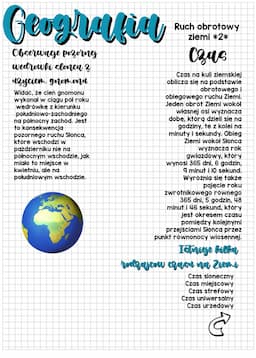 Geografia
Ruch obrotowy
ziemi *2*
Obserwacje pozornej
wędrówki słońca z
użyciem gnomonu
Widać, że cień gnomonu
wykonał w ciągu pół roku
wędrówkę z kierunku
południowo-zachodniego
na północny zachód. Jest
to konsekwencja
pozornego ruchu Słońca,
które wschodzi w
październiku nie na
północnym wschodzie, jak
miało to miejsce w
kwietniu, ale na
południowym wschodzie.
Czas
Czas na kuli ziemskiej
oblicza się na podstawie
obrotowego i
obiegowego ruchu Ziemi.
Jeden obrót Ziemi wokół
własnej osi wyznacza
dobę, którą dzieli się na
godziny, te z kolei na
minuty i sekundy. Obieg
Ziemi wokół Słońca
wyznacza rok
gwiazdowy, który
wynosi 365 dni, 6 godzin,
9 minut i 10 sekund.
Wyróżnia się także
pojęcie roku
zwrotnikowego równego
365 dni, 5 godzin, 48
minut i 46 sekund, który
jest okresem czasu
pomiędzy kolejnymi
przejściami Słońca przez
punkt równonocy wiosennej.
Istnieje kilka
rodzajów czasu na Ziemi
Czas słoneczny
Czas miejscowy
Czas strefowy
Czas uniwersalny
Czas urzędowy